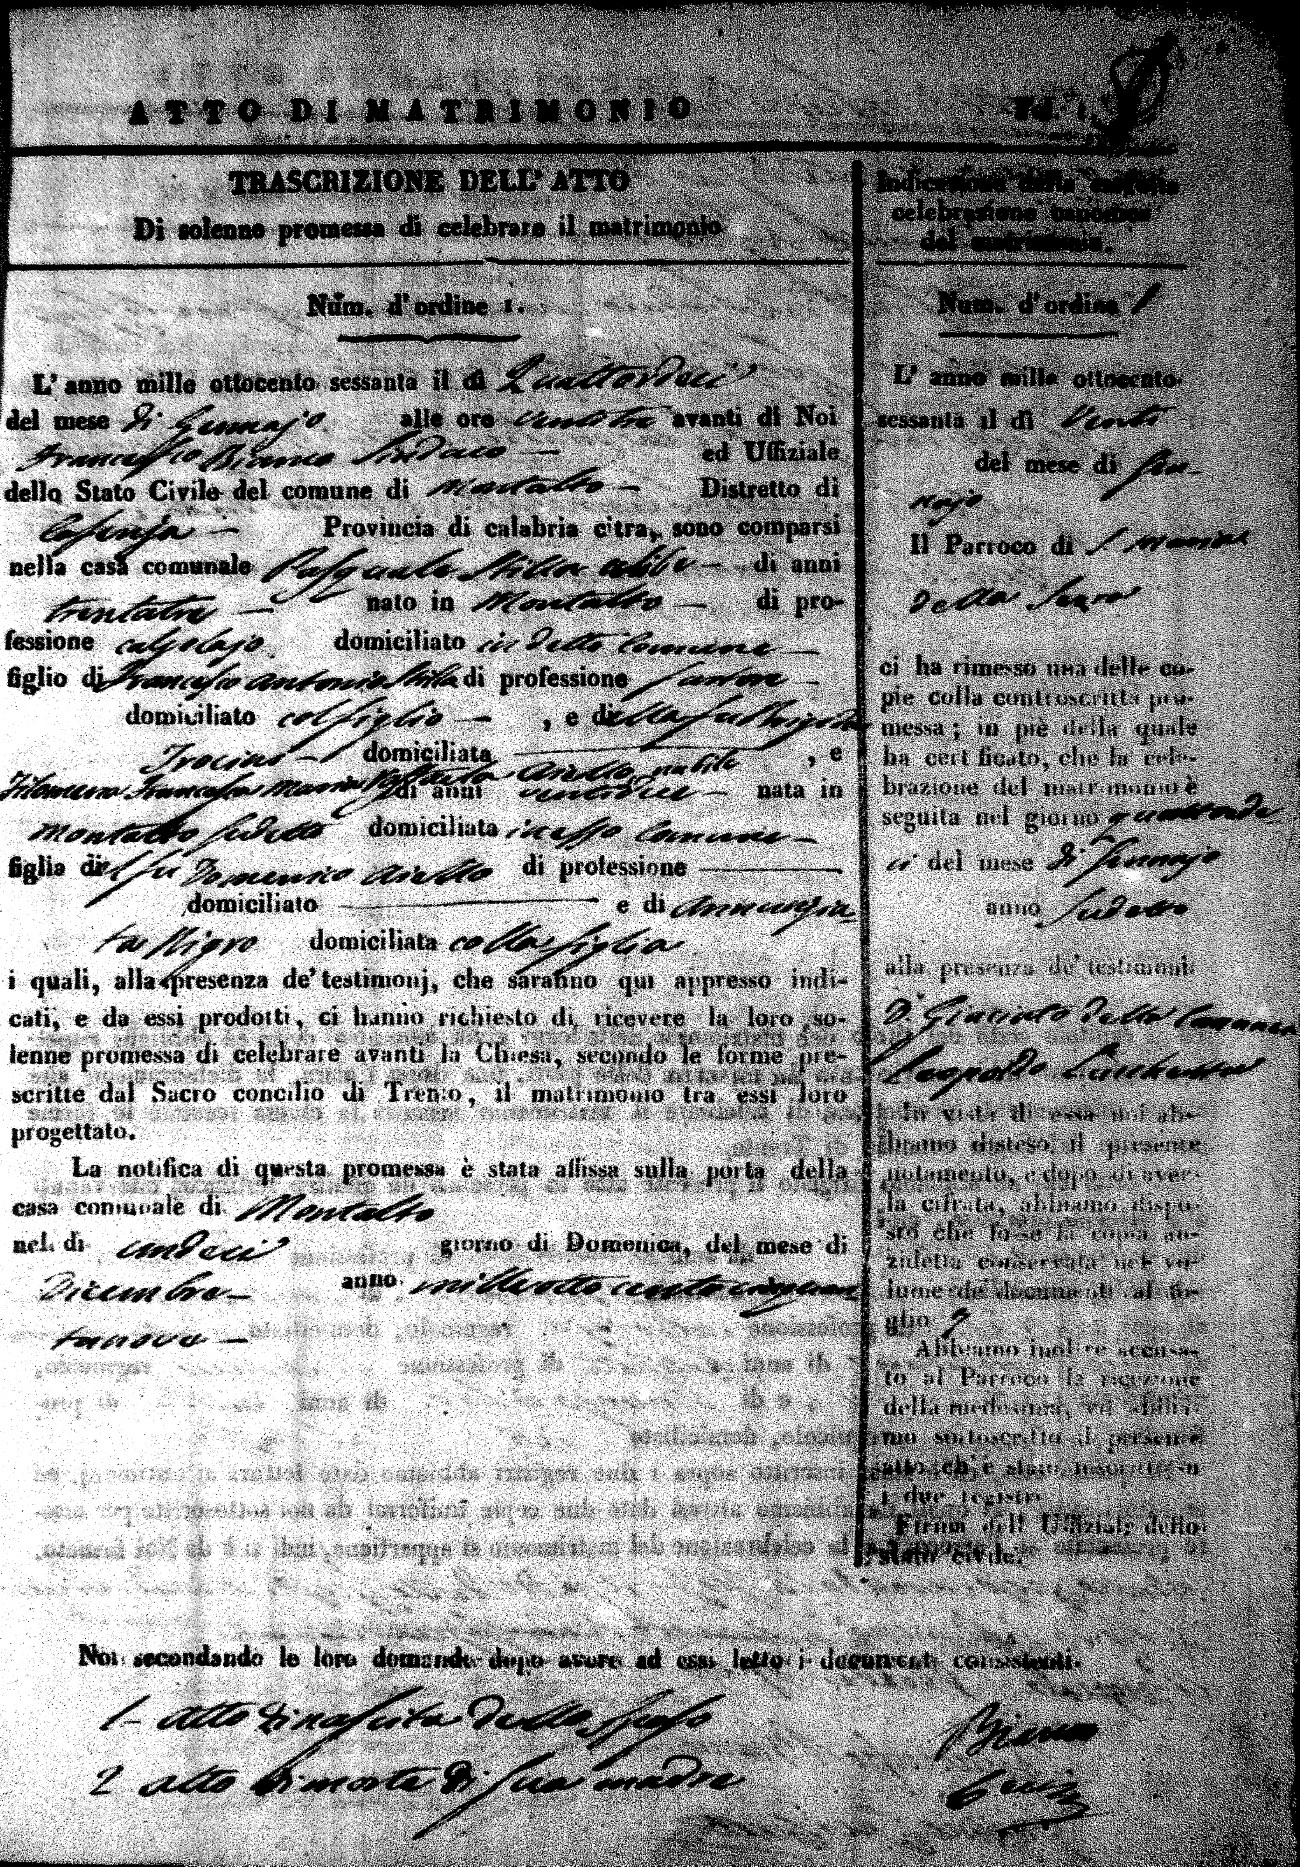 ATTO DI MATRIMONIO
TRASCRIZIONE DELL' ATTO
Di solenne promessa di celebrare il matrimonio
Num. d' ordine 1.
L' anno mille ottocento sessanta il dì Quattordeci
del mese di Gennajo alle ore ventitre avanti di Noi
Francesco Bianco Sindaco ed Uffiziale
dello Stato Civile del comune di Montalto Distretto di
Cosenza Provincia di calabria citra, sono comparsi
nella casa comunale Pasquale Stilla di anni
trentatre nato in Montalto di pro-
fessione calzolajo domiciliato in detto Comune
figlio di Francesco Antonio Stilla di professione Sartore
domiciliato col figlio , e della fu
domiciliata , e
Filomena Francesca Maria Aiello nubile
di anni ventidue nata in
Montalto sudetto domiciliata in esso Comune
figlia del fu Domenico Aiello di professione
domiciliato e di Annunzia
ta Nigro domiciliata colla figlia
i quali, alla presenza de' testimonj, che saranno qui appresso indi-
cati, e da essi prodotti, ci hanno richiesto di ricevere la loro so-
lenne promessa di celebrare avanti la Chiesa, secondo le forme pre-
scritte dal Sacro concilio di Trento, il matrimonio tra essi loro
progettato.
La notifica di questa promessa è stata affissa sulla porta della
casa comunale di Montalto
nel dì undeci giorno di Domenica, del mese di
Dicembre anno milleotto cento cinquan
tanove
Noi secondando le loro domande dopo avere ad essi letto i documenti consistenti.
1- Atto di nascita dello Sposo
2 Atto di morte di sua madre
Indicazione della seguita
celebrazione canonica
del matrimonio.
Num. d' ordine 1
L' anno mille ottocento
sessanta il dì Venti
del mese di Gen-
najo
Il Parroco di S. Maria
della Serra
ci ha rimesso una delle co-
pie colla controscritta pro-
messa; in piè della quale
ha certificato, che la cele-
brazione del matrimonio è
seguita nel giorno quattorde
ci del mese di Gennajo
anno sudetto
alla presenza de' testimoni
D. Giacinto della Cananea
Leopoldo
In vista di essa noi ab-
biamo disteso il presente
notamento, e dopo di aver-
la cifrata, abbiamo dispo-
sto che fosse la copia an-
zidetta conservata nel vo-
lume de' documenti al fo-
glio
Abbiamo inoltre accusa-
to al Parroco la ricezione
della medesima, ed abbia-
mo sottoscritto il presente
atto, ch' è stato inscritto in
i due registri
Firma dell' Uffiziale dello
stato civile.
Bianco